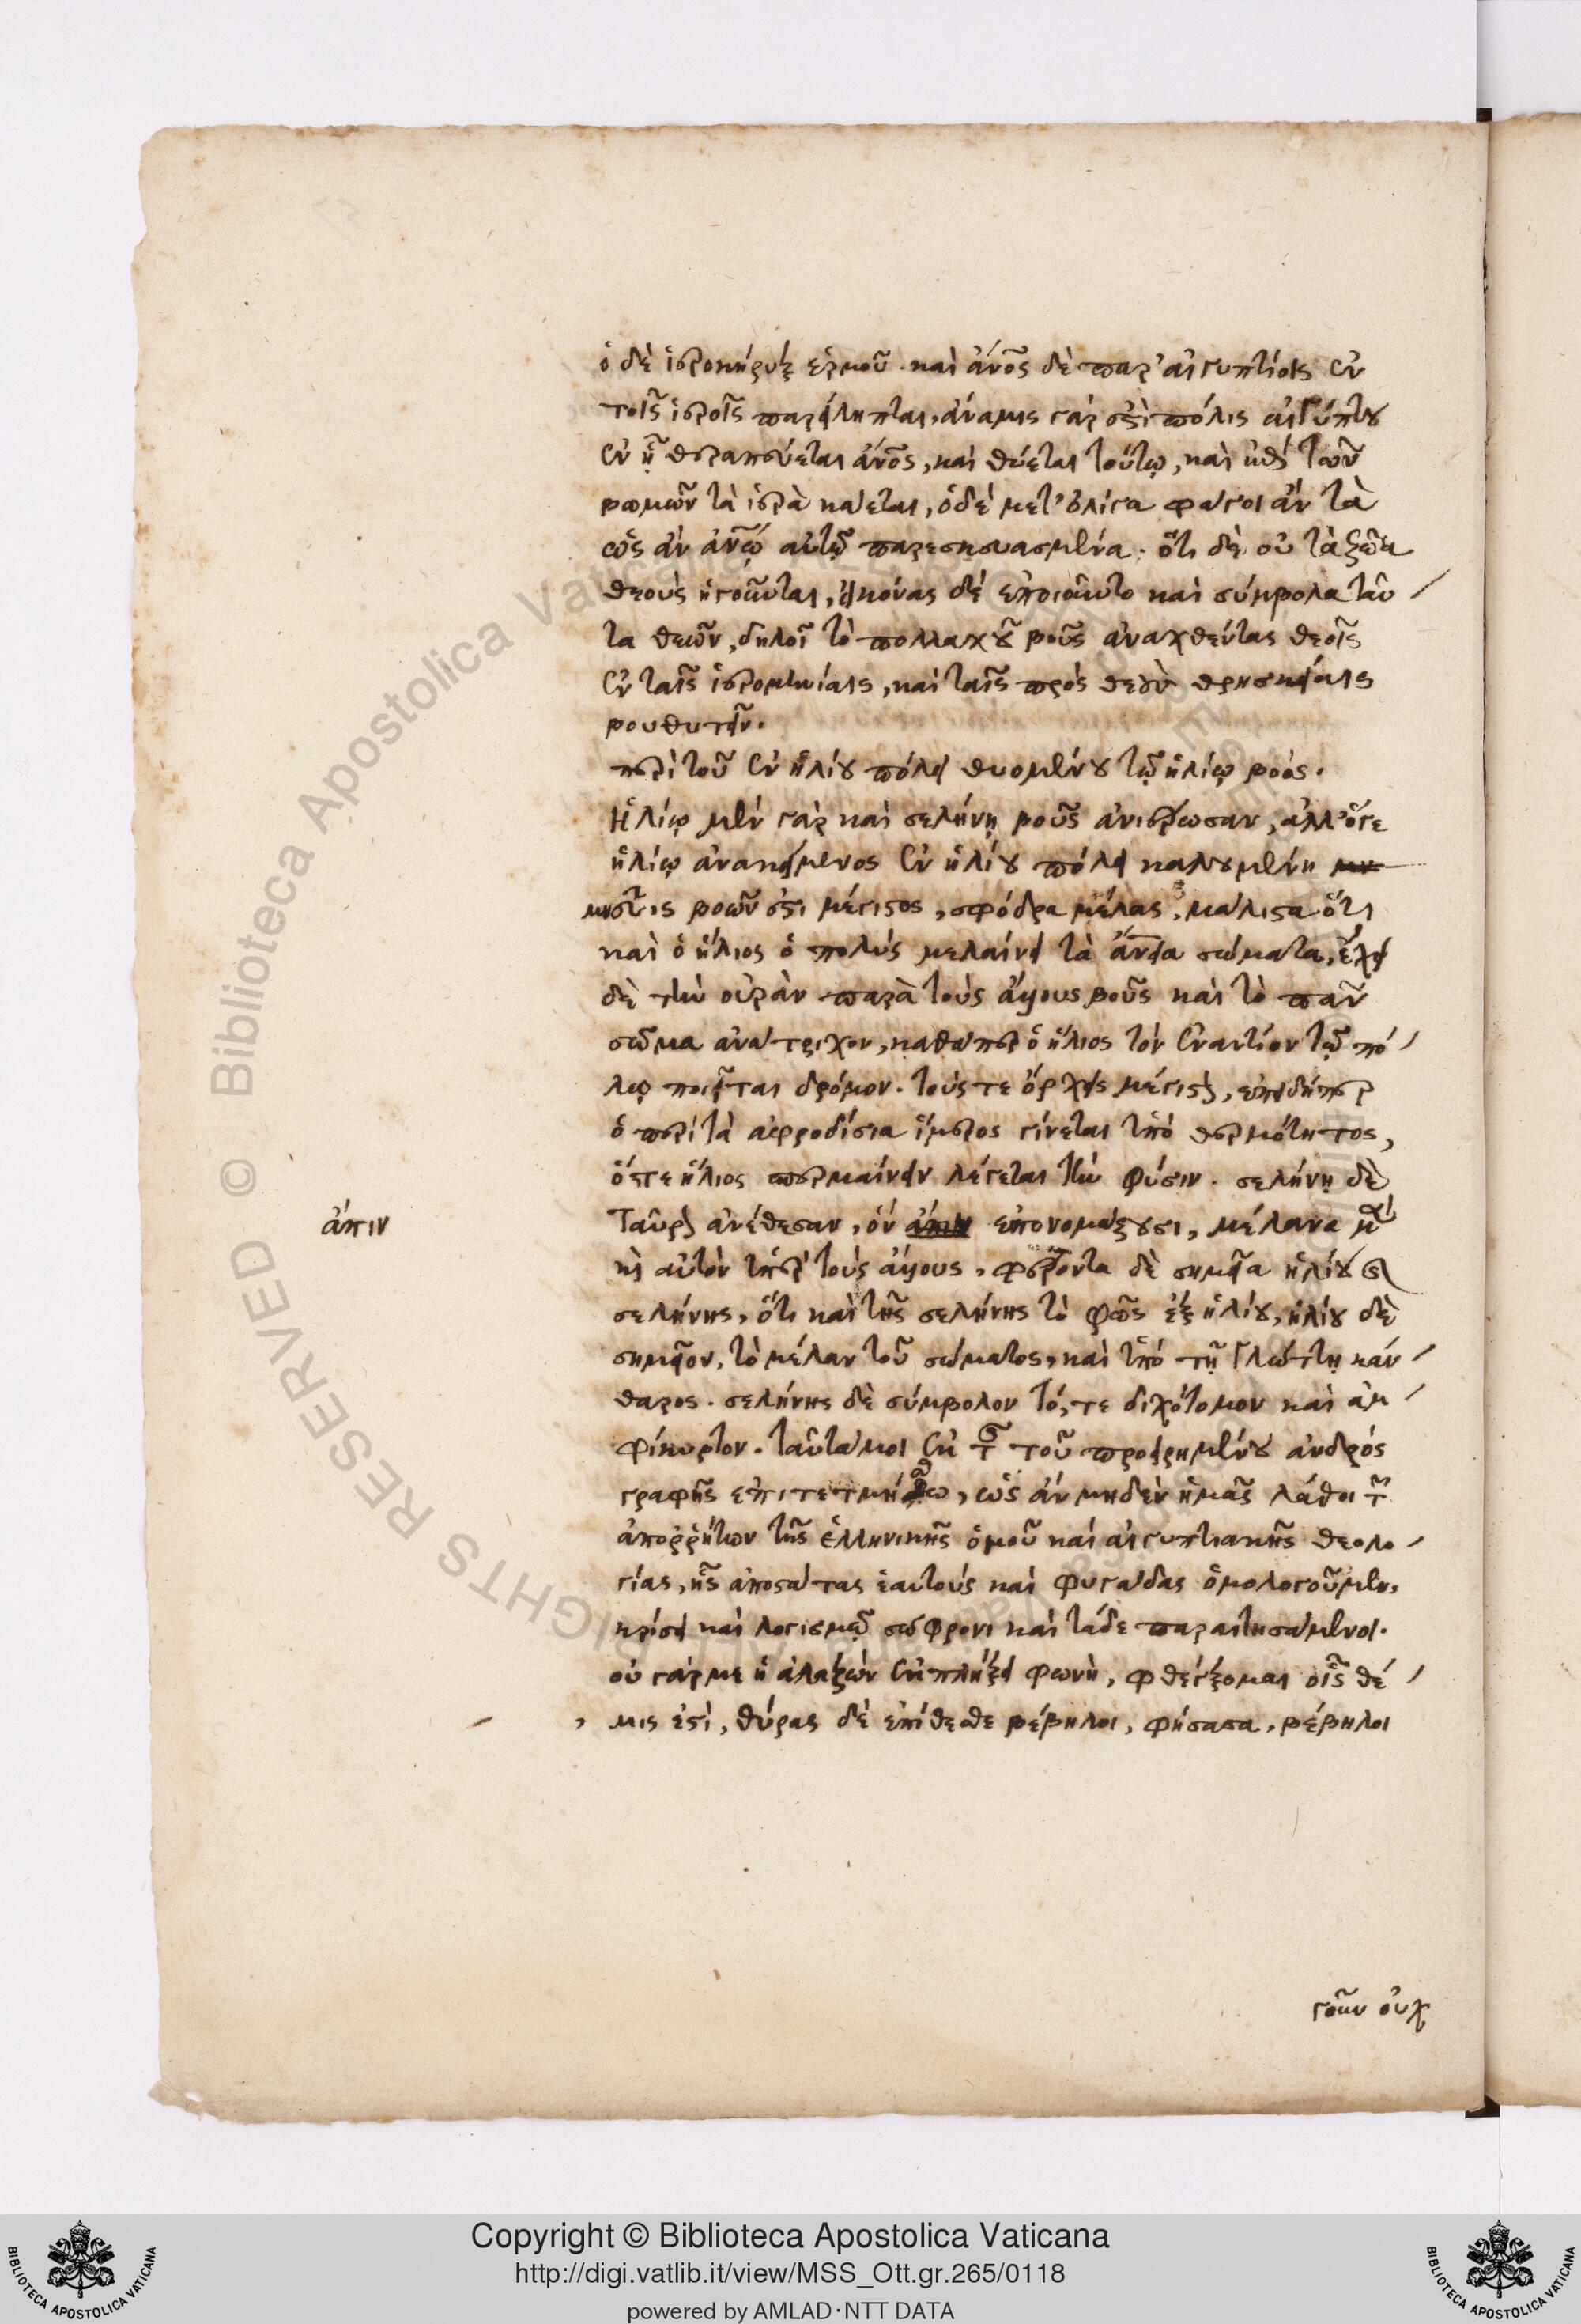 ὁ δὲ ἱεροκήρυξ ἑρμοῦ. καὶ ἄνος δὲ παρ' αἰγυπτίοις ἐν
τοῖς ἱεροῖς παρείληπται, ἄναμις γάρ ἐστὶ πόλις αἰγύπτου
ἐν ᾗ θεραπεύεται ἄνος, καὶ θύεται τούτῳ, καὶ ἐπὶ τῶν
βωμῶν τὰ ἱερὰ καίεται, ὁ δὲ μετ' ὀλίγα φάγοι ἂν τὰ
ὡς ἂν ἀνῳ αὐτῷ παρεσκευασμένα. ὅτι δὲ οὐ τὰ ζῶα
θεοὺς ἡγοῦνται, εἰκόνας δὲ ἐποιοῦντο καὶ σύμβολα ταῦ
τα θεῶν, δηλοῖ τὸ πολλαχοῦ βοῦς ἀναχθέντας θεοῖς
ἐν ταῖς ἱερομηνίαις, καὶ ταῖς πρὸς θεοὺς θρησκείαις
βουθυτεῖν.
περὶ τοῦ ἐν ἡλίου πόλει θυομένου τῷ ἡλίῳ βοός.
Ἡλίῳ μὲν γὰρ καὶ σελήνῃ βοῦς ἀνιέρωσαν, ἀλλ' ὅγε
ἡλίῳ ἀνακείμενος ἐν ἡλίου πόλει καλουμένη
μηεῦις βοῶν ἐστι μέγιστος, σφόδρα μέλας, μάλιστα ὅτι
καὶ ὁ ἥλιος ὁ πολὺς μελαίνει τὰ ἄνεια σώματα, ἔχει
δὲ τὴν οὐρὰν παρὰ τοὺς ἄλλους βοῦς καὶ τὸ πᾶν
σῶμα ἀνάτριχον, καθάπερ ὁ ἥλιος τὸν ἐναντίον τῷ πό
λῳ ποιεῖται δρόμον. τούς τε ὄρχεις μέγιστον, ἐπειδήπερ
ὁ περὶ τὰ ἀφροδίσια ἵμερος γίνεται ὑπὸ θερμότητος,
ὅ, τε ἥλιος σπερμαίνειν λέγεται τὴν φύσιν. σελήνῃ δὲ
ταῦρον ἀνέθεσαν, ὃν ἄπιν ἐπονομάζουσι, μέλανα μὲν
καὶ αὐτὸν ὑπὲρ τοὺς ἄλλους, φέροντα δὲ σημεῖα ἡλίου καὶ
σελήνης, ὅτι καὶ τῆς σελήνης τὸ φῶς ἐξ ἡλίου, ἡλίου δὲ
σημεῖον, τὸ μέλαν τοῦ σώματος, καὶ ὑπὸ τῇ γλώττῃ κάν
θαρος. σελήνης δὲ σύμβολον τό, τε διχότομον καὶ ἀμ
φίκυρτον. ταῦτά μοι ἐκ τῆς τοῦ προειρημένου ἀνδρός
γραφῆς ἐπιτετμήσθω, ὡς ἂν μηδὲν ἡμᾶς λάθοι τῶν
ἀπορρήτων τῆς ἑλληνικῆς ὁμοῦ καὶ αἰγυπτιακῆς θεολο
γίας, ἧς ἀποστάτας ἑαυτοὺς καὶ φυγάδας ὁμολογοῦμεν,
κρίσει καὶ λογισμῷ σώφρονι καὶ τάδε παραιτησάμενοι.
οὐ γάρ με ἡ ἀλαζὼν ἐκπλήξει φωνὴ, φθέγξομαι οἷς θέ
μις ἐστὶ, θύρας δὲ ἐπίθεσθε βέβηλοι, φήσασα, βέβηλοι
ἄπιν
γοῦν οὐχ
Copyright © Biblioteca Apostolica Vaticana
http://digi.vatlib.it/view/MSS_Ott.gr.265/0118
powered by AMLAD·NTT DATA
BIBLIOTECA APOSTOLICA VATICANA
BIBLIOTECA APOSTOLICA VATICANA